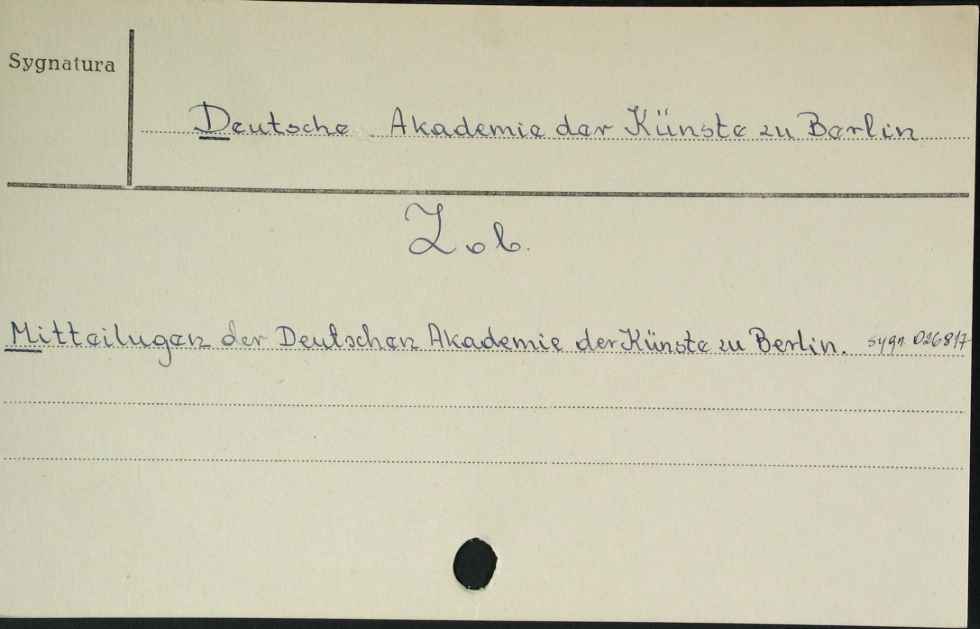 Sygnatura
Deutsche Akademie der Künste zu Berlin
Zob.
Mitteilugen der Deutschen Akademie der Künste zu Berlin. sygn. 026817